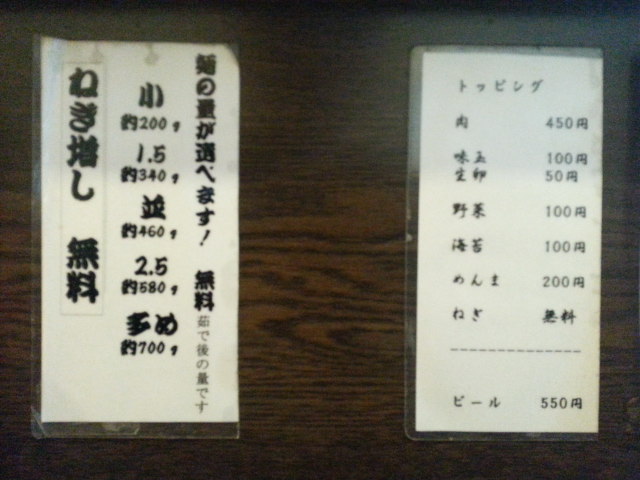 麺の量が選べます！ 無料 茹で後の量です
小
約200g
1.5
約340g
並
約460g
2.5
約580g
多め
約700g
ねぎ増し 無料
トッピング
肉 450円
味玉 100円
生卵 50円
野菜 100円
海苔 100円
めんま 200円
ねぎ 無料
ビール 550円